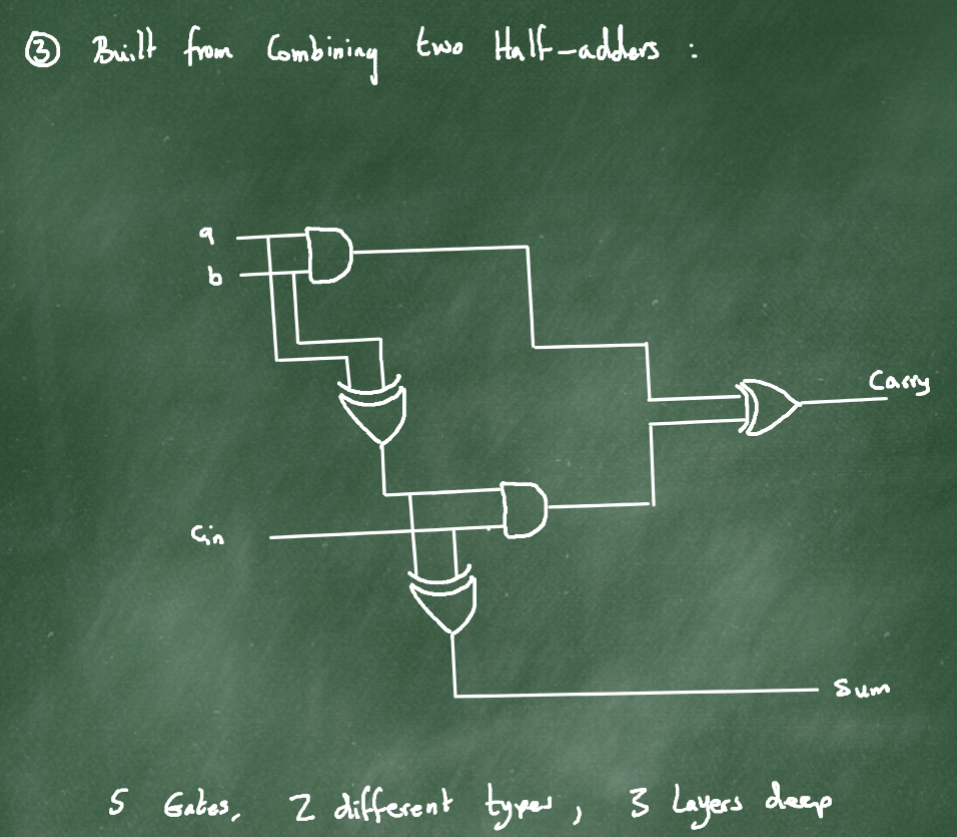 ③ Built from Combining two Half-adders :
a
b
Carry
Cin
Sum
5 Gates, 2 different types, 3 Layers deep